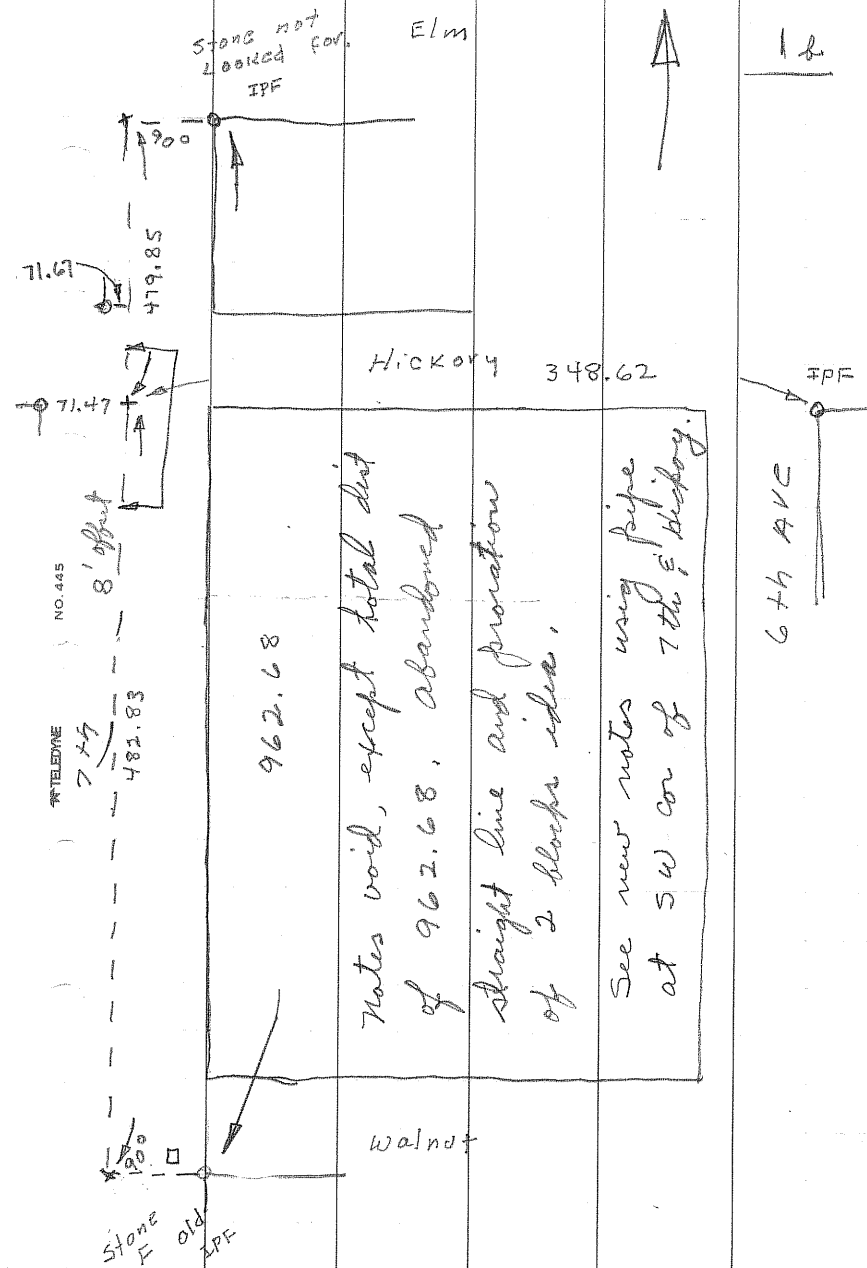 Stone not
Looked for.
IPF
Elm
1 b
90°
479.85
71.67
Hickory
348.62
IPF
71.47
6th AVE
8' offset
NO. 445
TELEDYNE
7th
482.83
962.68
Notes void, except total dist
of 962.68. abandoned
straight line and proration
of 2 blocks idea.
See new notes using pipe
at SW cor of 7th & Hickory.
Walnut
90°
Stone
F
old
IPF